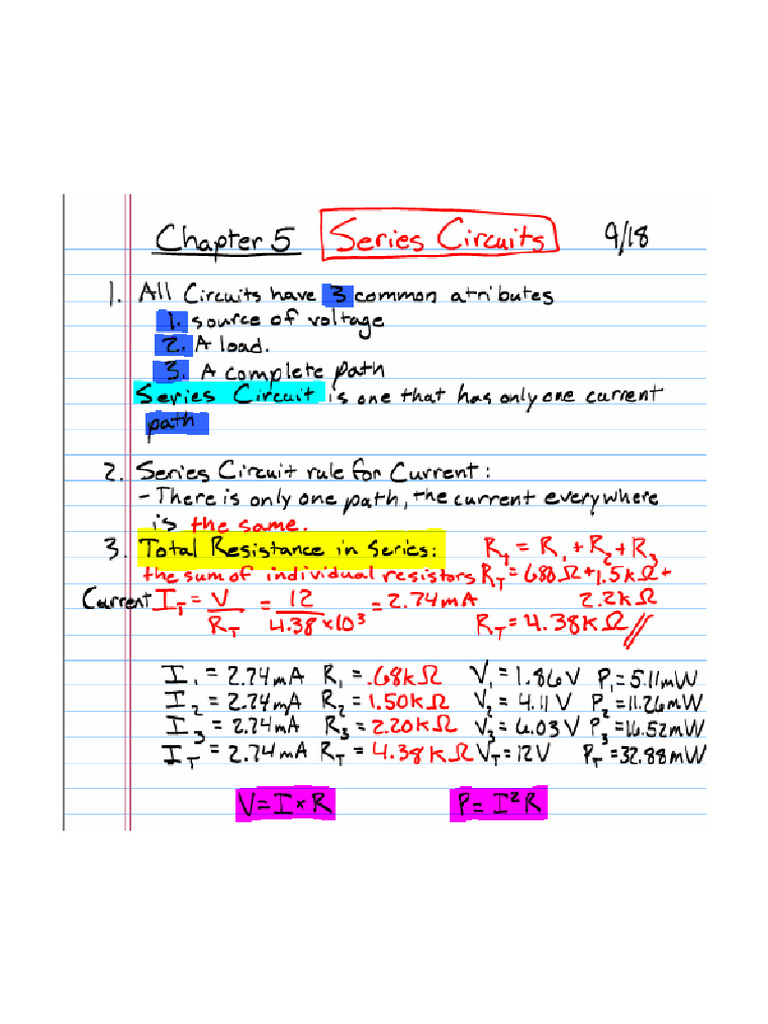 Chapter 5 Series Circuits 9/18
1. All Circuits have 3 common atributes
1. source of voltage
2. A load.
3. A complete path
Series Circuit is one that has only one current
path
2. Series Circuit rule for Current:
- There is only one path, the current everywhere
is the same.
3. Total Resistance in Series: R_t = R_1 + R_2 + R_3
the sum of individual resistors R_T = 680Ω + 1.5kΩ + 2.2kΩ
Current I_T = V/R_T = 12/4.38×10³ = 2.74mA
R_T = 4.38kΩ //
I_1 = 2.74mA R_1 = .68kΩ V_1 = 1.86V P_1 = 5.11mW
I_2 = 2.74mA R_2 = 1.50kΩ V_2 = 4.11V P_2 = 11.26mW
I_3 = 2.74mA R_3 = 2.20kΩ V_3 = 6.03V P_3 = 16.52mW
I_T = 2.74mA R_T = 4.38kΩ V_T = 12V P_T = 32.88mW
V = I × R P = I²R